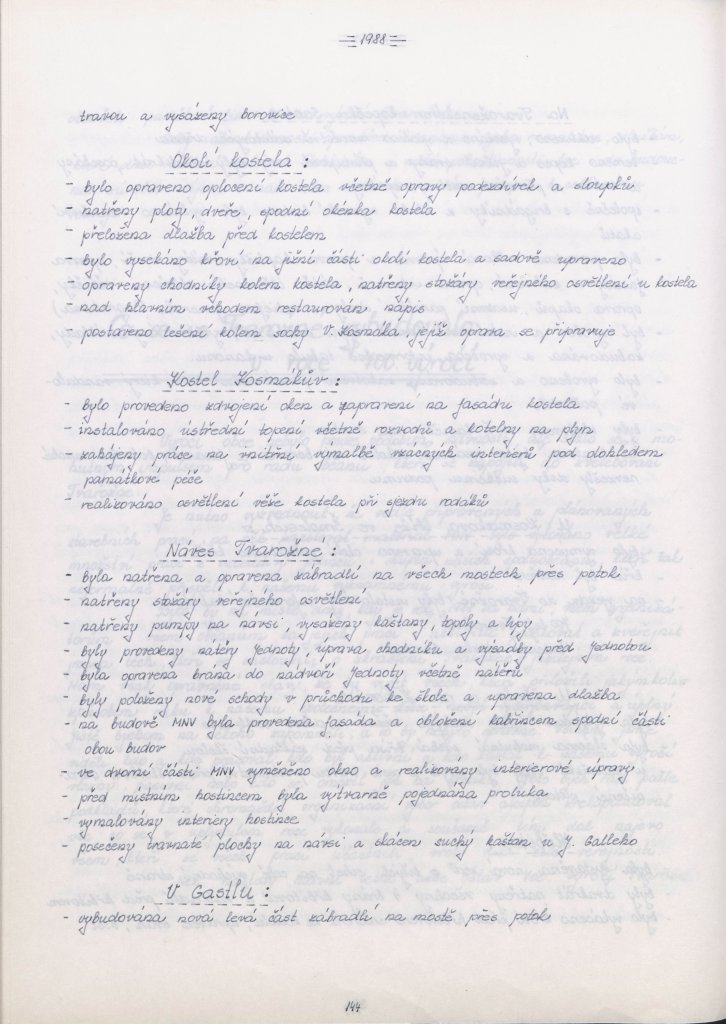 1988
travou a vysázeny borovice
Okolí kostela :
- bylo opraveno oplocení kostela včetně opravy podezdívek a sloupků
- natřeny ploty, dveře, spodní okénka kostela
- přeložena dlažba před kostelem
- bylo vysekáno křoví na jižní části okolí kostela a sadově upraveno
- opraveny chodníky kolem kostela, natřeny stožáry veřejného osvětlení u kostela
- nad hlavním vchodem restaurován nápis
- postaveno lešení kolem sochy V. Kosmáka, jejíž oprava se připravuje
Kostel Kosmákův :
- bylo provedeno zdvojení oken a zapravení na fasádu kostela
- instalováno ústřední topení včetně rozvodů a kotelny na plyn
- zahájeny práce na vnitřní výmalbě vzácných interierů pod dohledem
památkové péče
- realizováno osvětlení věže kostela při sjezdu rodáků
Náves Tvarožné :
- byla natřena a opravena zábradlí na všech mostech přes potok
- natřeny stožáry veřejného osvětlení
- natřeny pumpy na návsi vysazeny kaštany, topoly a lípy
- byly provedeny nátěry Jednoty, úprava chodníku a výsadby před Jednotou
- byla opravena brána do nádvoří Jednoty včetně nátěrů
- byly položeny nové schody v průchodu ke škole a upravena dlažba
- na budově MNV byla provedena fasáda a obložení kabřincem spodní části
obou budov
- ve dvorní části MNV vyměněno okno a realizovány interierové úpravy
- před místním hostincem byla výtvarně pojednána proluka
- vymalovány interiery hostince
- posečeny travnaté plochy na návsi a skácen suchý kaštan u J. Galleho
V Gastlu :
- vybudována nová levá část zábradlí na mostě přes potok
144